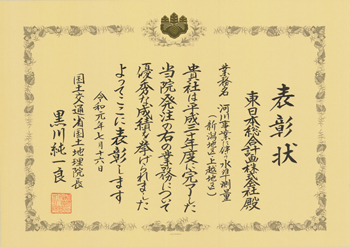 表彰状
東日本総合計画株式会社殿
業務名 河川事業に伴う水準測量
(新潟地区・上越地区)
貴社は平成三十年度に完了した
当院発注の右の業務について
優秀な成績を挙げられました
よってここに表彰します
令和元年七月十六日
国土交通省国土地理院長
黒川純一良